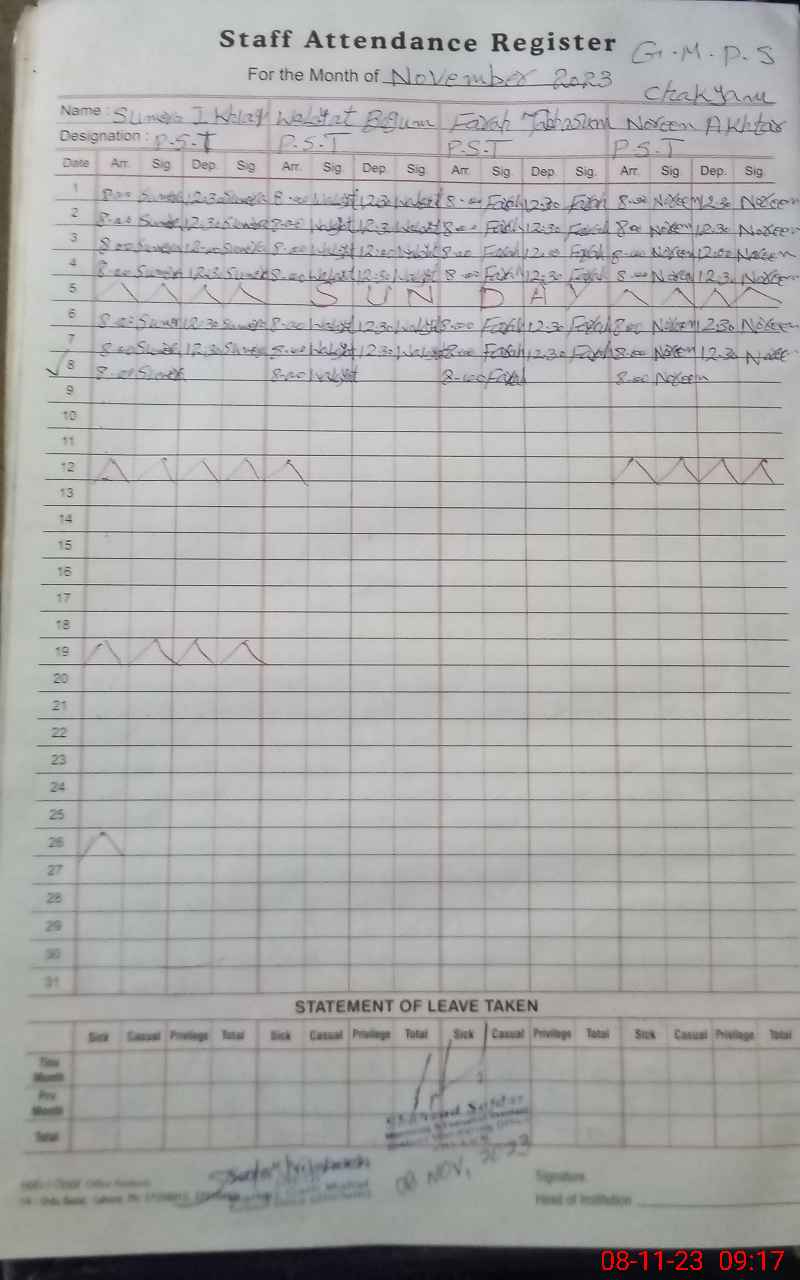 Staff Attendance Register G.M.P.S
For the Month of November 2023 Chakyanu
Name : Sumera Walyat Begum Farah Tabbasum Noreen Akhtar
Designation : P.S.T P.S.T P.S.T P.S.T
Date Arr. Sig. Dep. Sig. Arr. Sig. Dep. Sig. Arr. Sig. Dep. Sig. Arr. Sig. Dep. Sig.
1 8.00 12.30 8.00 12.30 8.00 Farah 12.30 Farah 8.00 Noreen 12.30 Noreen
2 8.00 12.30 8.00 12.30 8.00 Farah 12.30 Farah 8.00 Noreen 12.30 Noreen
3 8.00 12.00 8.00 12.00 8.00 Farah 12.00 Farah 8.00 Noreen 12.00 Noreen
4 8.00 12.30 8.00 12.30 8.00 Farah 12.30 Farah 8.00 Noreen 12.30 Noreen
5 SUNDAY
6 8.00 12.30 8.00 12.30 8.00 Farah 12.30 Farah 8.00 Noreen 12.30 Noreen
7 8.00 12.30 8.00 12.30 8.00 Farah 12.30 Farah 8.00 Noreen 12.30 Noreen
8 8.00 8.00 8.00 Farah 8.00 Noreen
9
10
11
12
13
14
15
16
17
18
19
20
21
22
23
24
25
26
27
28
29
30
31
STATEMENT OF LEAVE TAKEN
Sick Casual Privilege Total Sick Casual Privilege Total Sick Casual Privilege Total Sick Casual Privilege Total
This Month
Pre Month
Total
08 NOV, 2023
Signature
Head of Institution
08-11-23 09:17